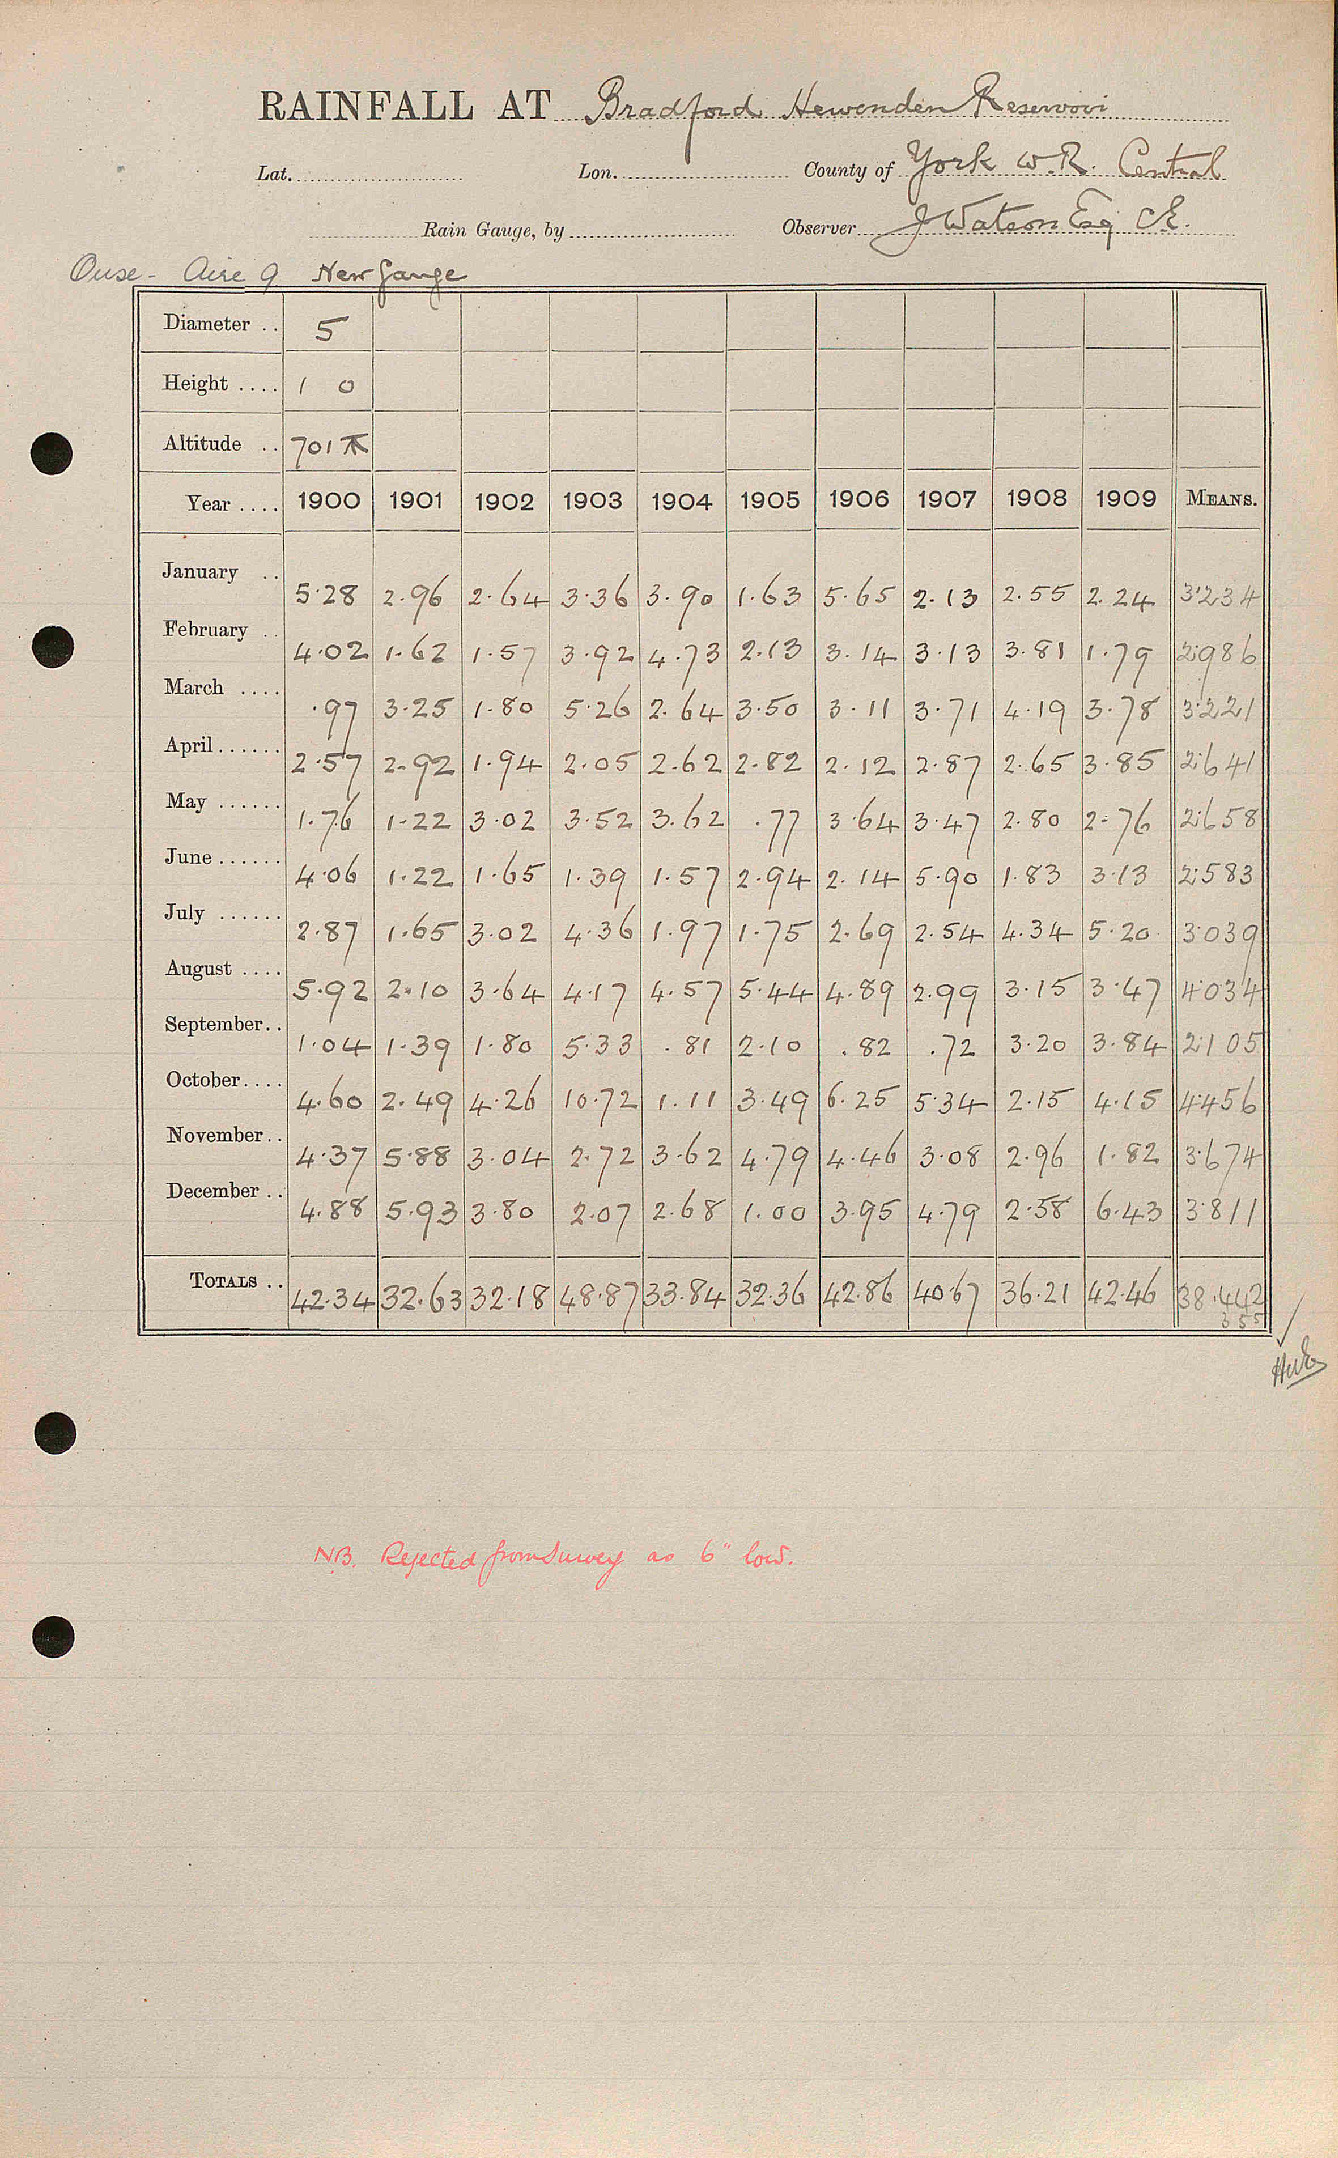 RAINFALL AT Bradford Hewenden Reservoir
Lat. Lon. County of York W.R. Central
Rain Gauge, by Observer J Watson Esq CE.
Ouse - Aire 9 New Gauge
Diameter .. 5
Height .... 1 0
Altitude .. 701
Year .... 1900 1901 1902 1903 1904 1905 1906 1907 1908 1909 MEANS.
January .. 5.28 2.96 2.64 3.36 3.90 1.63 5.65 2.13 2.55 2.24 3.234
February .. 4.02 1.62 1.57 3.92 4.73 2.13 3.14 3.13 3.81 1.79 2.986
March .... .97 3.25 1.80 5.26 2.64 3.50 3.11 3.71 4.19 3.78 3.221
April...... 2.57 2.92 1.94 2.05 2.62 2.82 2.12 2.87 2.65 3.85 2.641
May ...... 1.76 1.22 3.02 3.52 3.62 .77 3.64 3.47 2.80 2.76 2.658
June...... 4.06 1.22 1.65 1.39 1.57 2.94 2.14 5.90 1.83 3.13 2.583
July ...... 2.87 1.65 3.02 4.36 1.97 1.75 2.69 2.54 4.34 5.20 3.039
August .... 5.92 2.10 3.64 4.17 4.57 5.44 4.89 2.99 3.15 3.47 4.034
September.. 1.04 1.39 1.80 5.33 .81 2.10 .82 .72 3.20 3.84 2.105
October.... 4.60 2.49 4.26 10.72 1.11 3.49 6.25 5.34 2.15 4.15 4.456
November.. 4.37 5.88 3.04 2.72 3.62 4.79 4.46 3.08 2.96 1.82 3.674
December .. 4.88 5.93 3.80 2.07 2.68 1.00 3.95 4.79 2.58 6.43 3.811
TOTALS .. 42.34 32.63 32.18 48.87 33.84 32.36 42.86 40.67 36.21 42.46 38.442
355
NB. Rejected from Survey as 6" low.